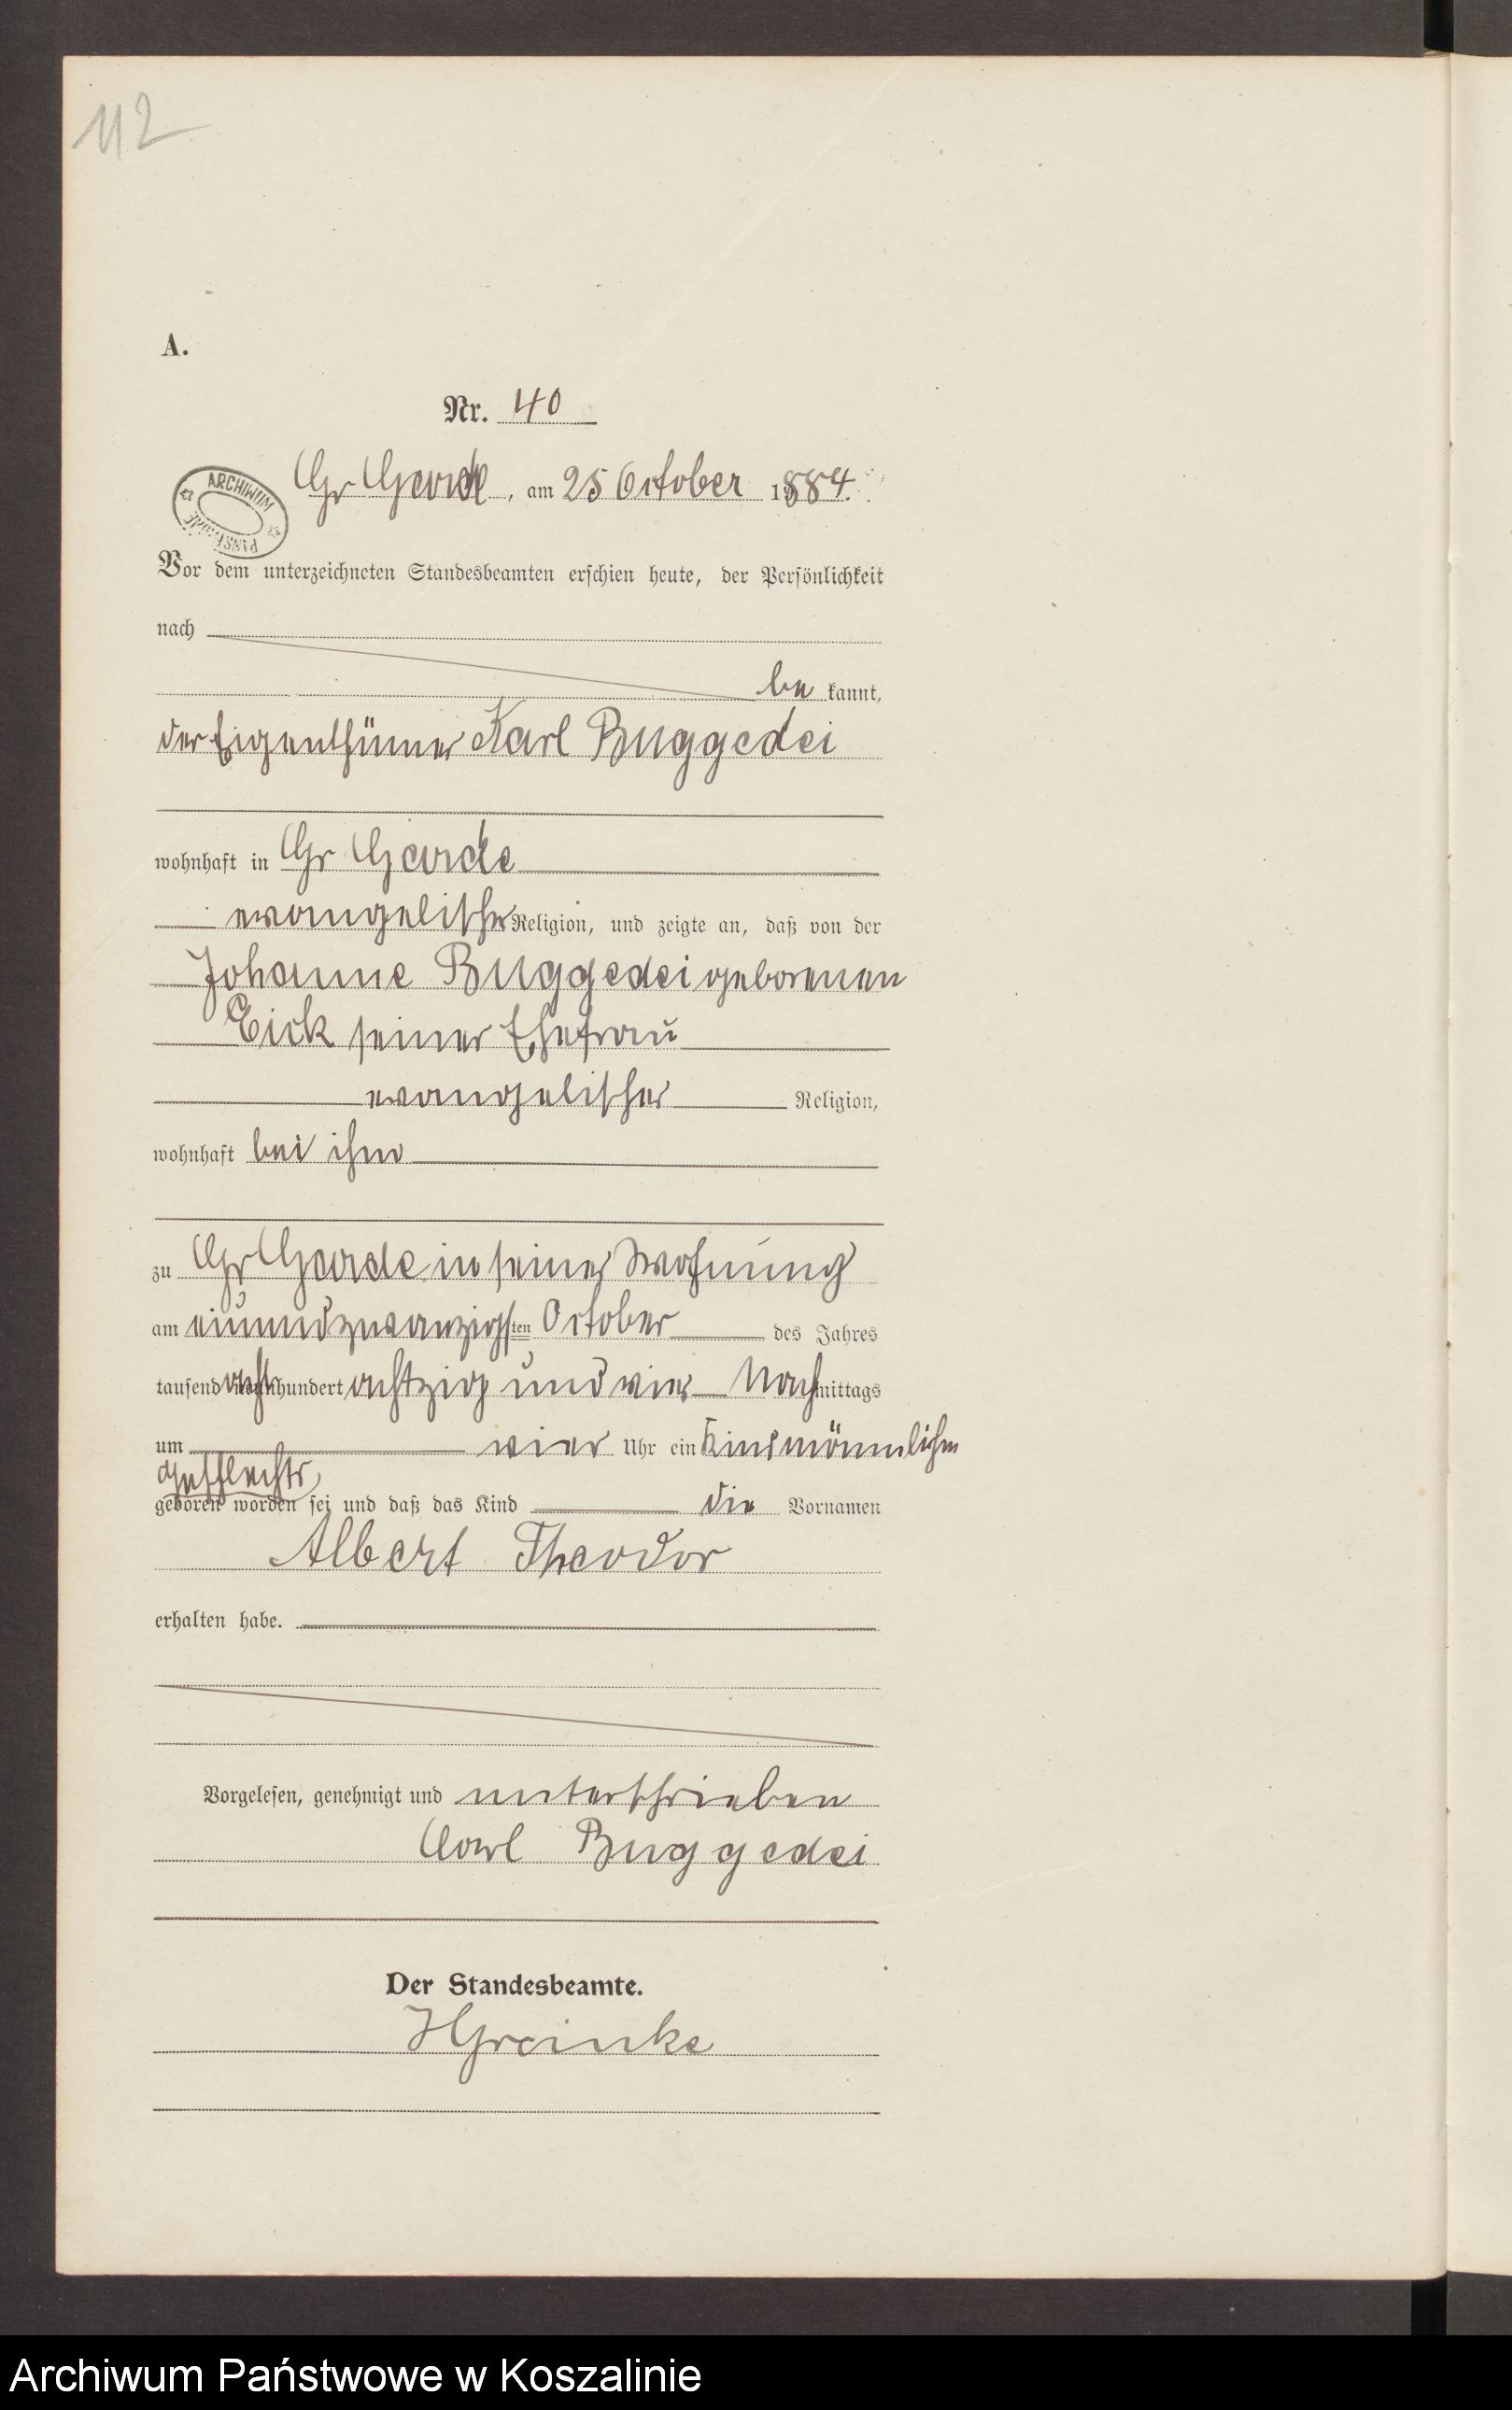 112
A.
Nr. 40
ARCHIWUM
Gr Garde, am 25 October 1884.
Vor dem unterzeichneten Standesbeamten erschien heute, der Persönlichkeit
nach
be kannt,
der Eigenthümer Karl Buggedei
wohnhaft in Gr Garde
evangelischer Religion, und zeigte an, daß von der
Johanne Buggedei geborenen
Eick seiner Ehefrau
evangelischer Religion,
wohnhaft bei ihm
zu Gr Garde in seiner Wohnung
am einundzwanzigsten October des Jahres
tausend acht hundert achtzig und vier Nachmittags
um vier Uhr ein Kind männlichen
Geschlechts
geboren worden sei und daß das Kind die Vornamen
Albert Theodor
erhalten habe.
Vorgelesen, genehmigt und unterschrieben
Carl Buggedei
Der Standesbeamte.
HGreinke
Archiwum Państwowe w Koszalinie